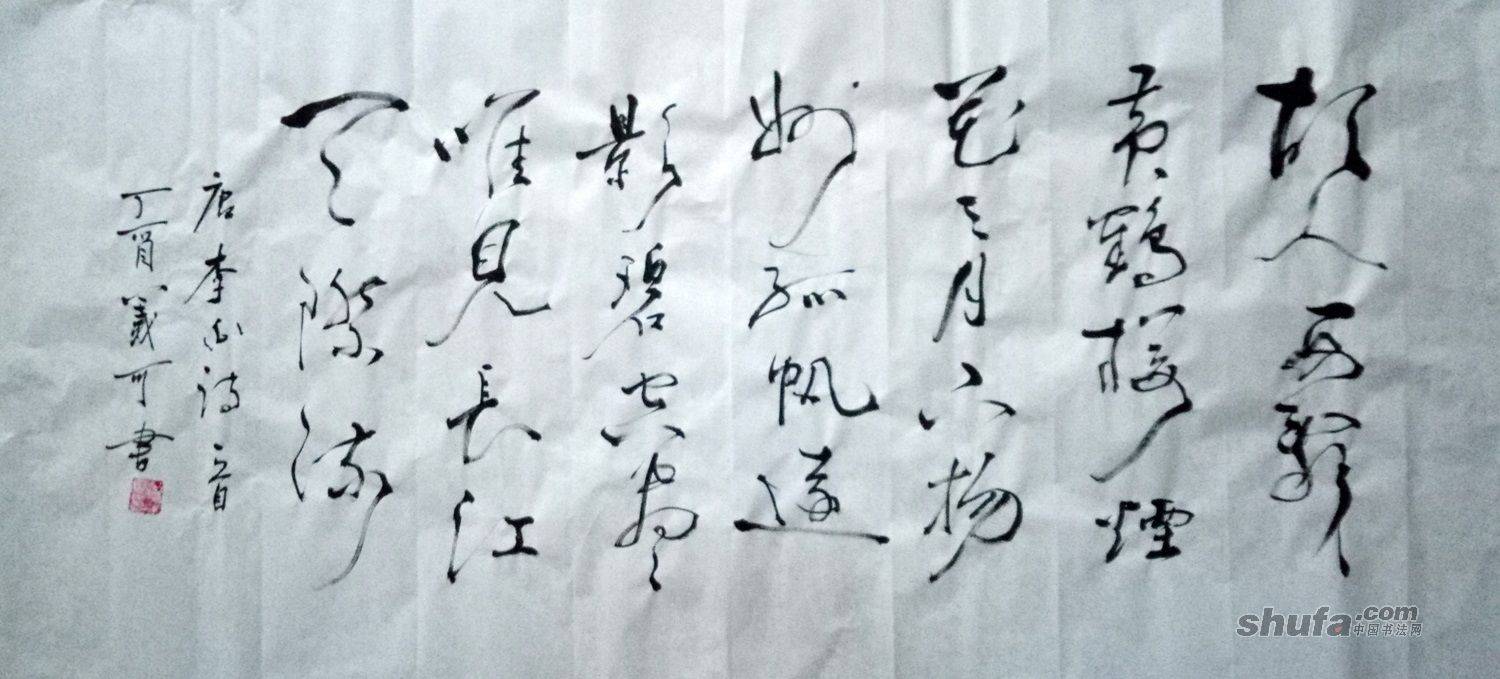 故人西辭
黄鶴樓煙
花三月下揚
州孤帆遠
影碧空盡
唯見長江
天際流
唐李白詩一首
丁酉義可書
shufa.com
中国书法网